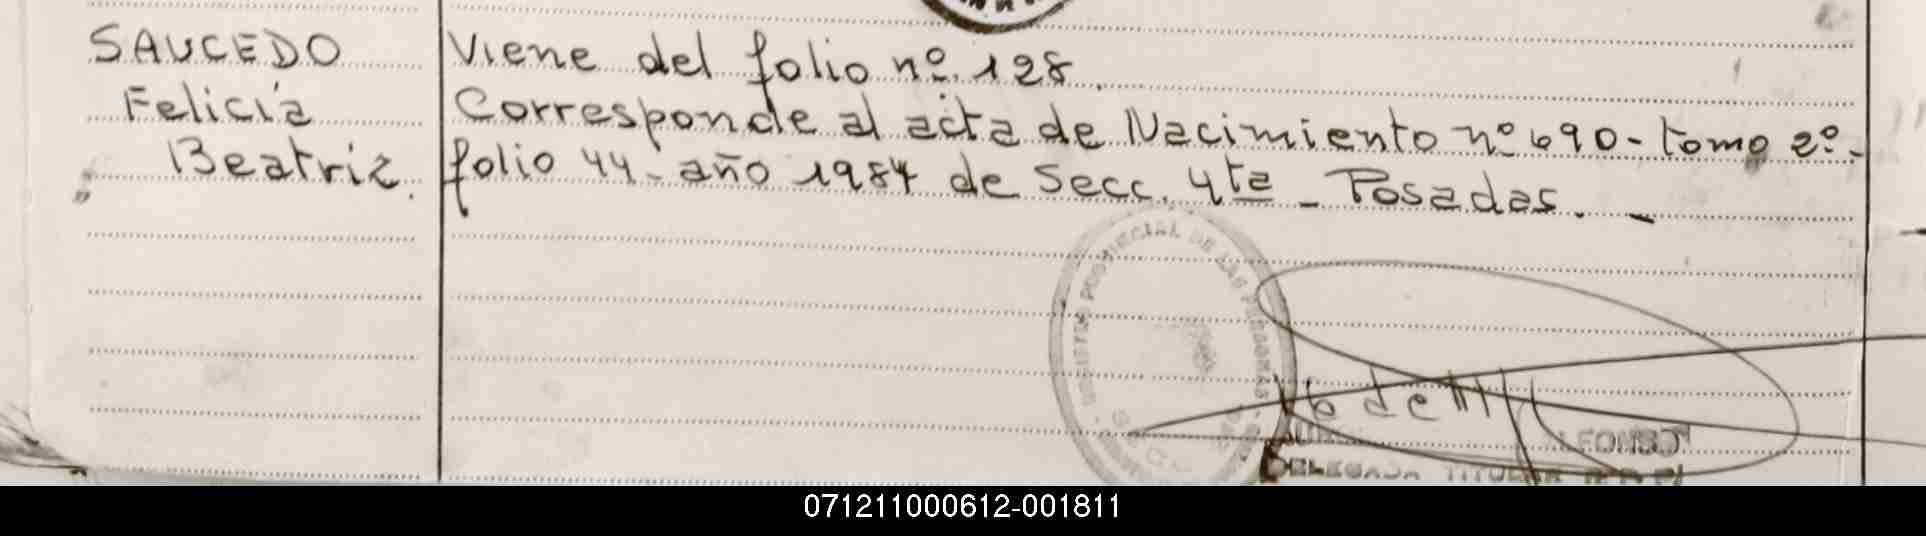 SAUCEDO
Felicia
Beatriz.
Viene del folio nº 128.
Corresponde al acta de Nacimiento nº 690 - tomo 2º -
folio 44 - año 1984 de Secc. 4ta - Posadas. -
REGISTRO PROVINCIAL DE LAS PERSONAS
DELEGADA TITULAR
071211000612-001811